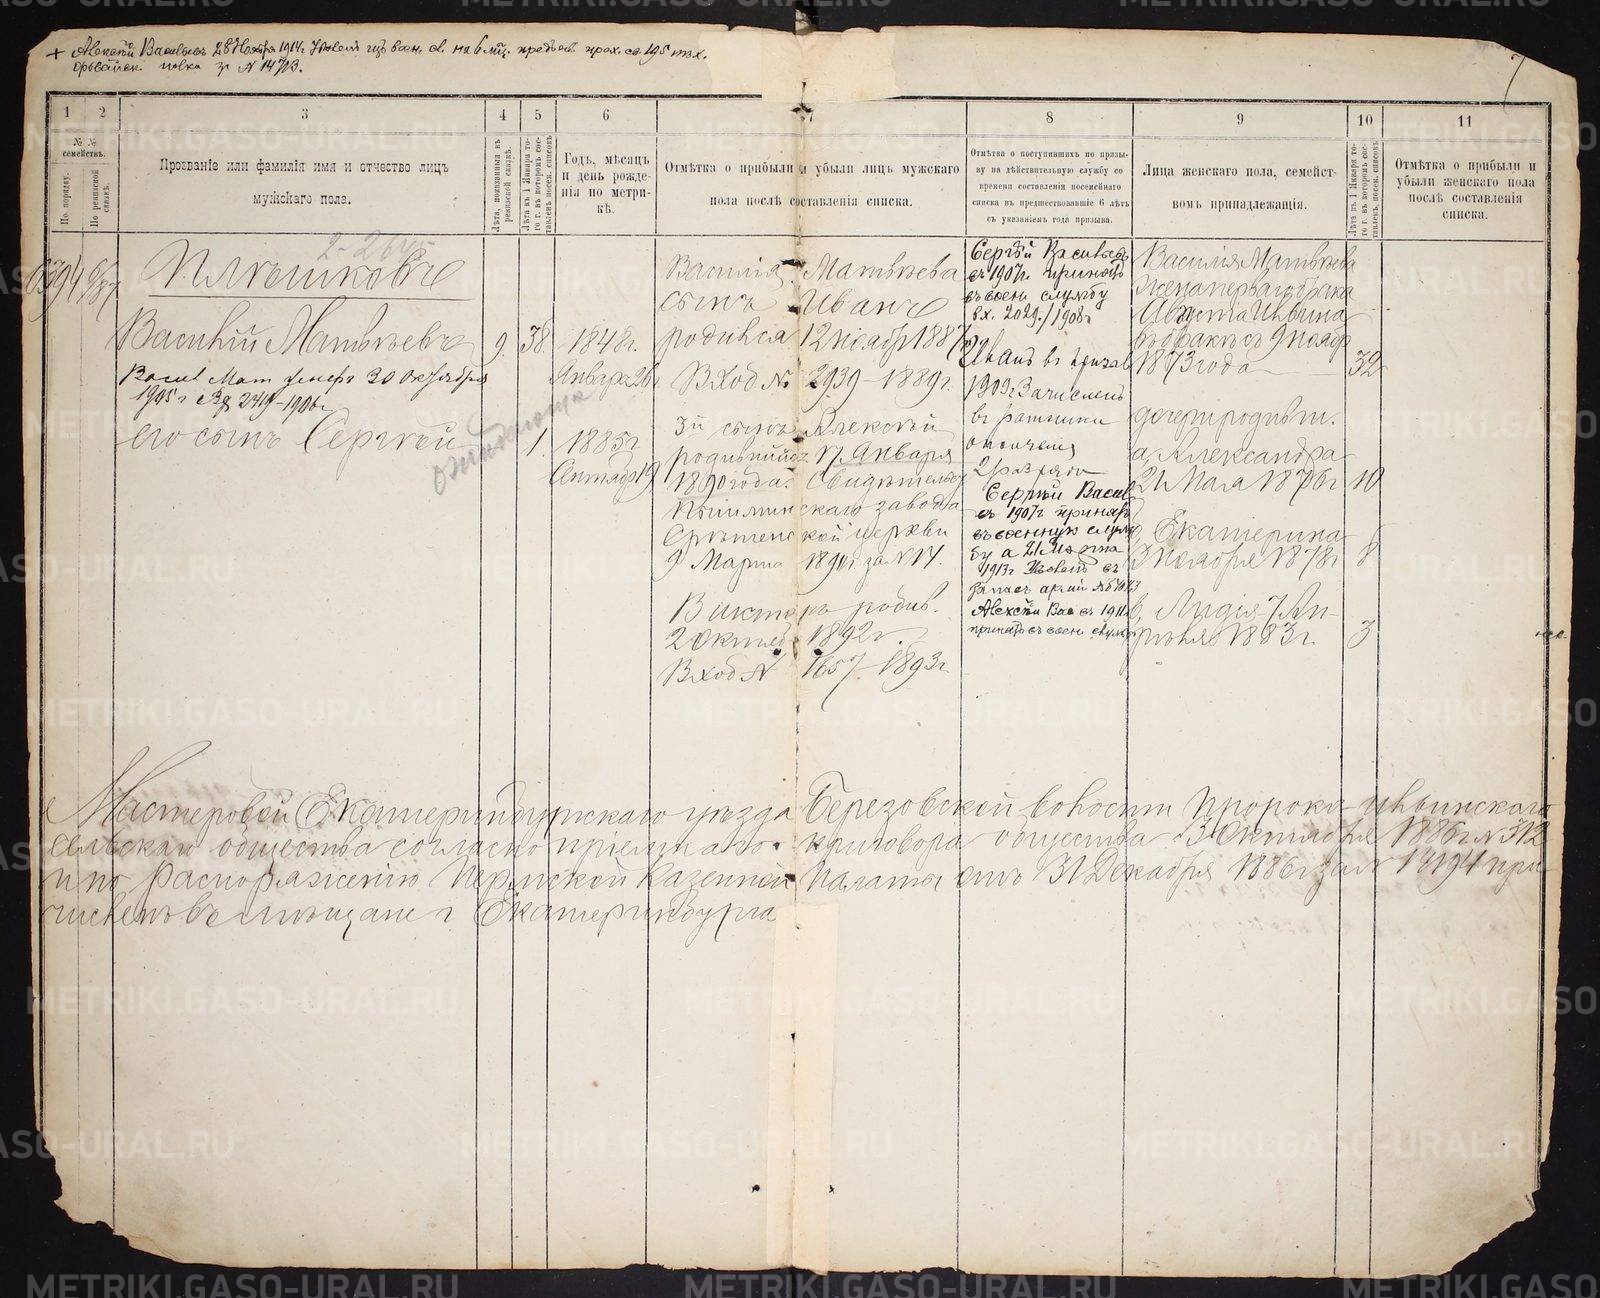 + Алексѣй Васильевъ 28 Ноября 1914 г.
за № 14713.
7
1
2
3
4
5
6
7
8
9
10
11
№ №
семействъ.
По порядку.
По ревизской сказкѣ.
Прозваніе или фамилія имя и отчество лицъ
мужскаго пола.
Лѣта, показанныя въ ревизской сказкѣ.
Лѣта къ 1 Января того г. въ которомъ составленъ посем. списокъ
Годъ, мѣсяцъ
и день рожде-
нія по метри-
кѣ.
Отмѣтка о прибыли и убыли лицъ мужскаго
пола послѣ составленія списка.
Отмѣтка о поступившихъ по призы-
ву на дѣйствительную службу со
времени составленія посемейнаго
списка въ предшествовавшіе 6 лѣтъ
съ указаніемъ года призыва.
Лица женскаго пола, семейст-
вомъ принадлежащія.
Лѣта къ 1 Января того г. въ которомъ составленъ посем. списокъ
Отмѣтка о прибыли и
убыли женскаго пола
послѣ составленія
списка.
Василій Матвѣевъ
9.
38
1848 г.
Января 26
Васил Мат умеръ 30 Октября
1905 г Вх 2419-1906 г
его сынъ Сергѣй
1.
1885 г
Октября 19
Василія Матвѣева
сынъ Иванъ
родился 12 ноября 1887
Вход № 2939-1889 г.
3й сынъ Алексѣй
родившійся Января
1890 года. Свидѣтельст
Пышминскаго завода
Срѣтенской церкви
9 Марта за № 14.
Викторъ родив.
2 Октяб 1892 г.
Вход № 1657-1893 г.
Сергѣй Васильевъ
въ 1907 г. принятъ
въ воен службу
вх. 2029./1908 г
Иванъ въ призыв
1909 г Зачисленъ
въ ратники
ополченія
2 разряда
Сергѣй Васил
въ 1907 г принятъ
въ военную служ
бу а 21 Марта
1913 г Уволенъ въ
запасъ арміи
Алексѣй Вас въ 1911
принятъ въ воен служб
Василія Матвѣева
жена перваго брака
Августа Ильина
въ бракѣ съ 9 Ноябр
1873 года
32
дочери родныя.
а, Александра
21 Мая 1876 г
10
б, Екатерина
3 Ноября 1878 г
8
в, Лидія 7 Ап-
рѣля 1883 г.
3
Мастеровой Екатеринбургскаго уѣзда Березовской волости Пророко-Ильинскаго
сельскаго общества согласно пріемнаго приговора общества 3 Октября 1886 г № 312
и по распоряженію Пермской Казенной Палаты отъ 31 Декабря 1886 г за № 13194 при
численъ въ мѣщане г. Екатеринбурга
METRIKI.GASO-URAL.RU